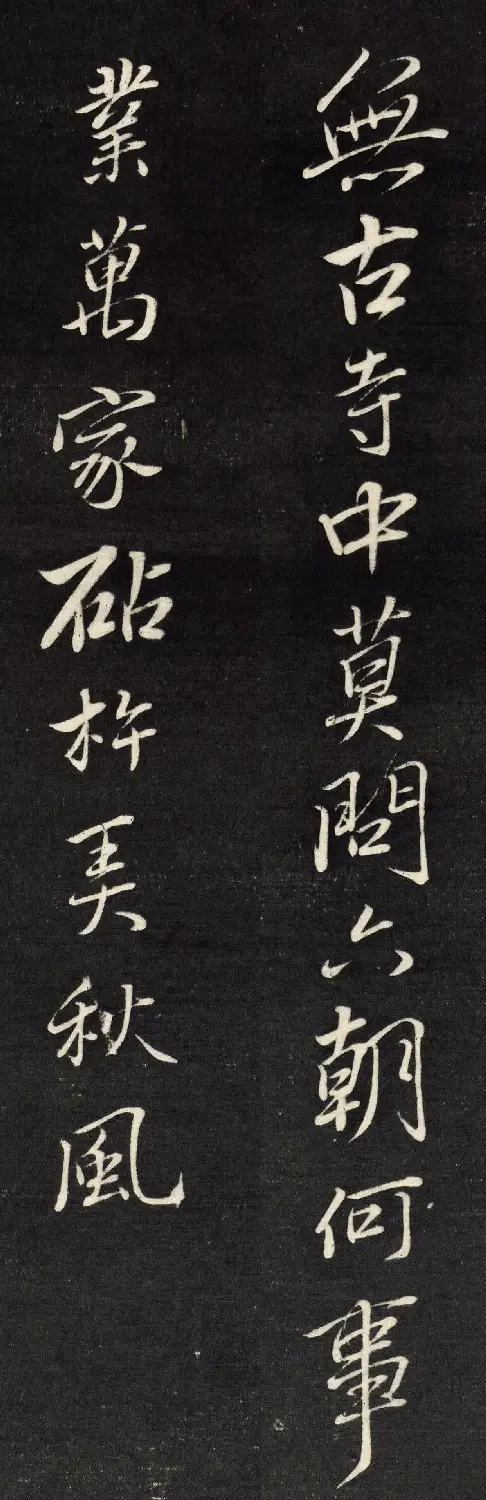 無古寺中莫問六朝何事
業萬家砧杵美秋風